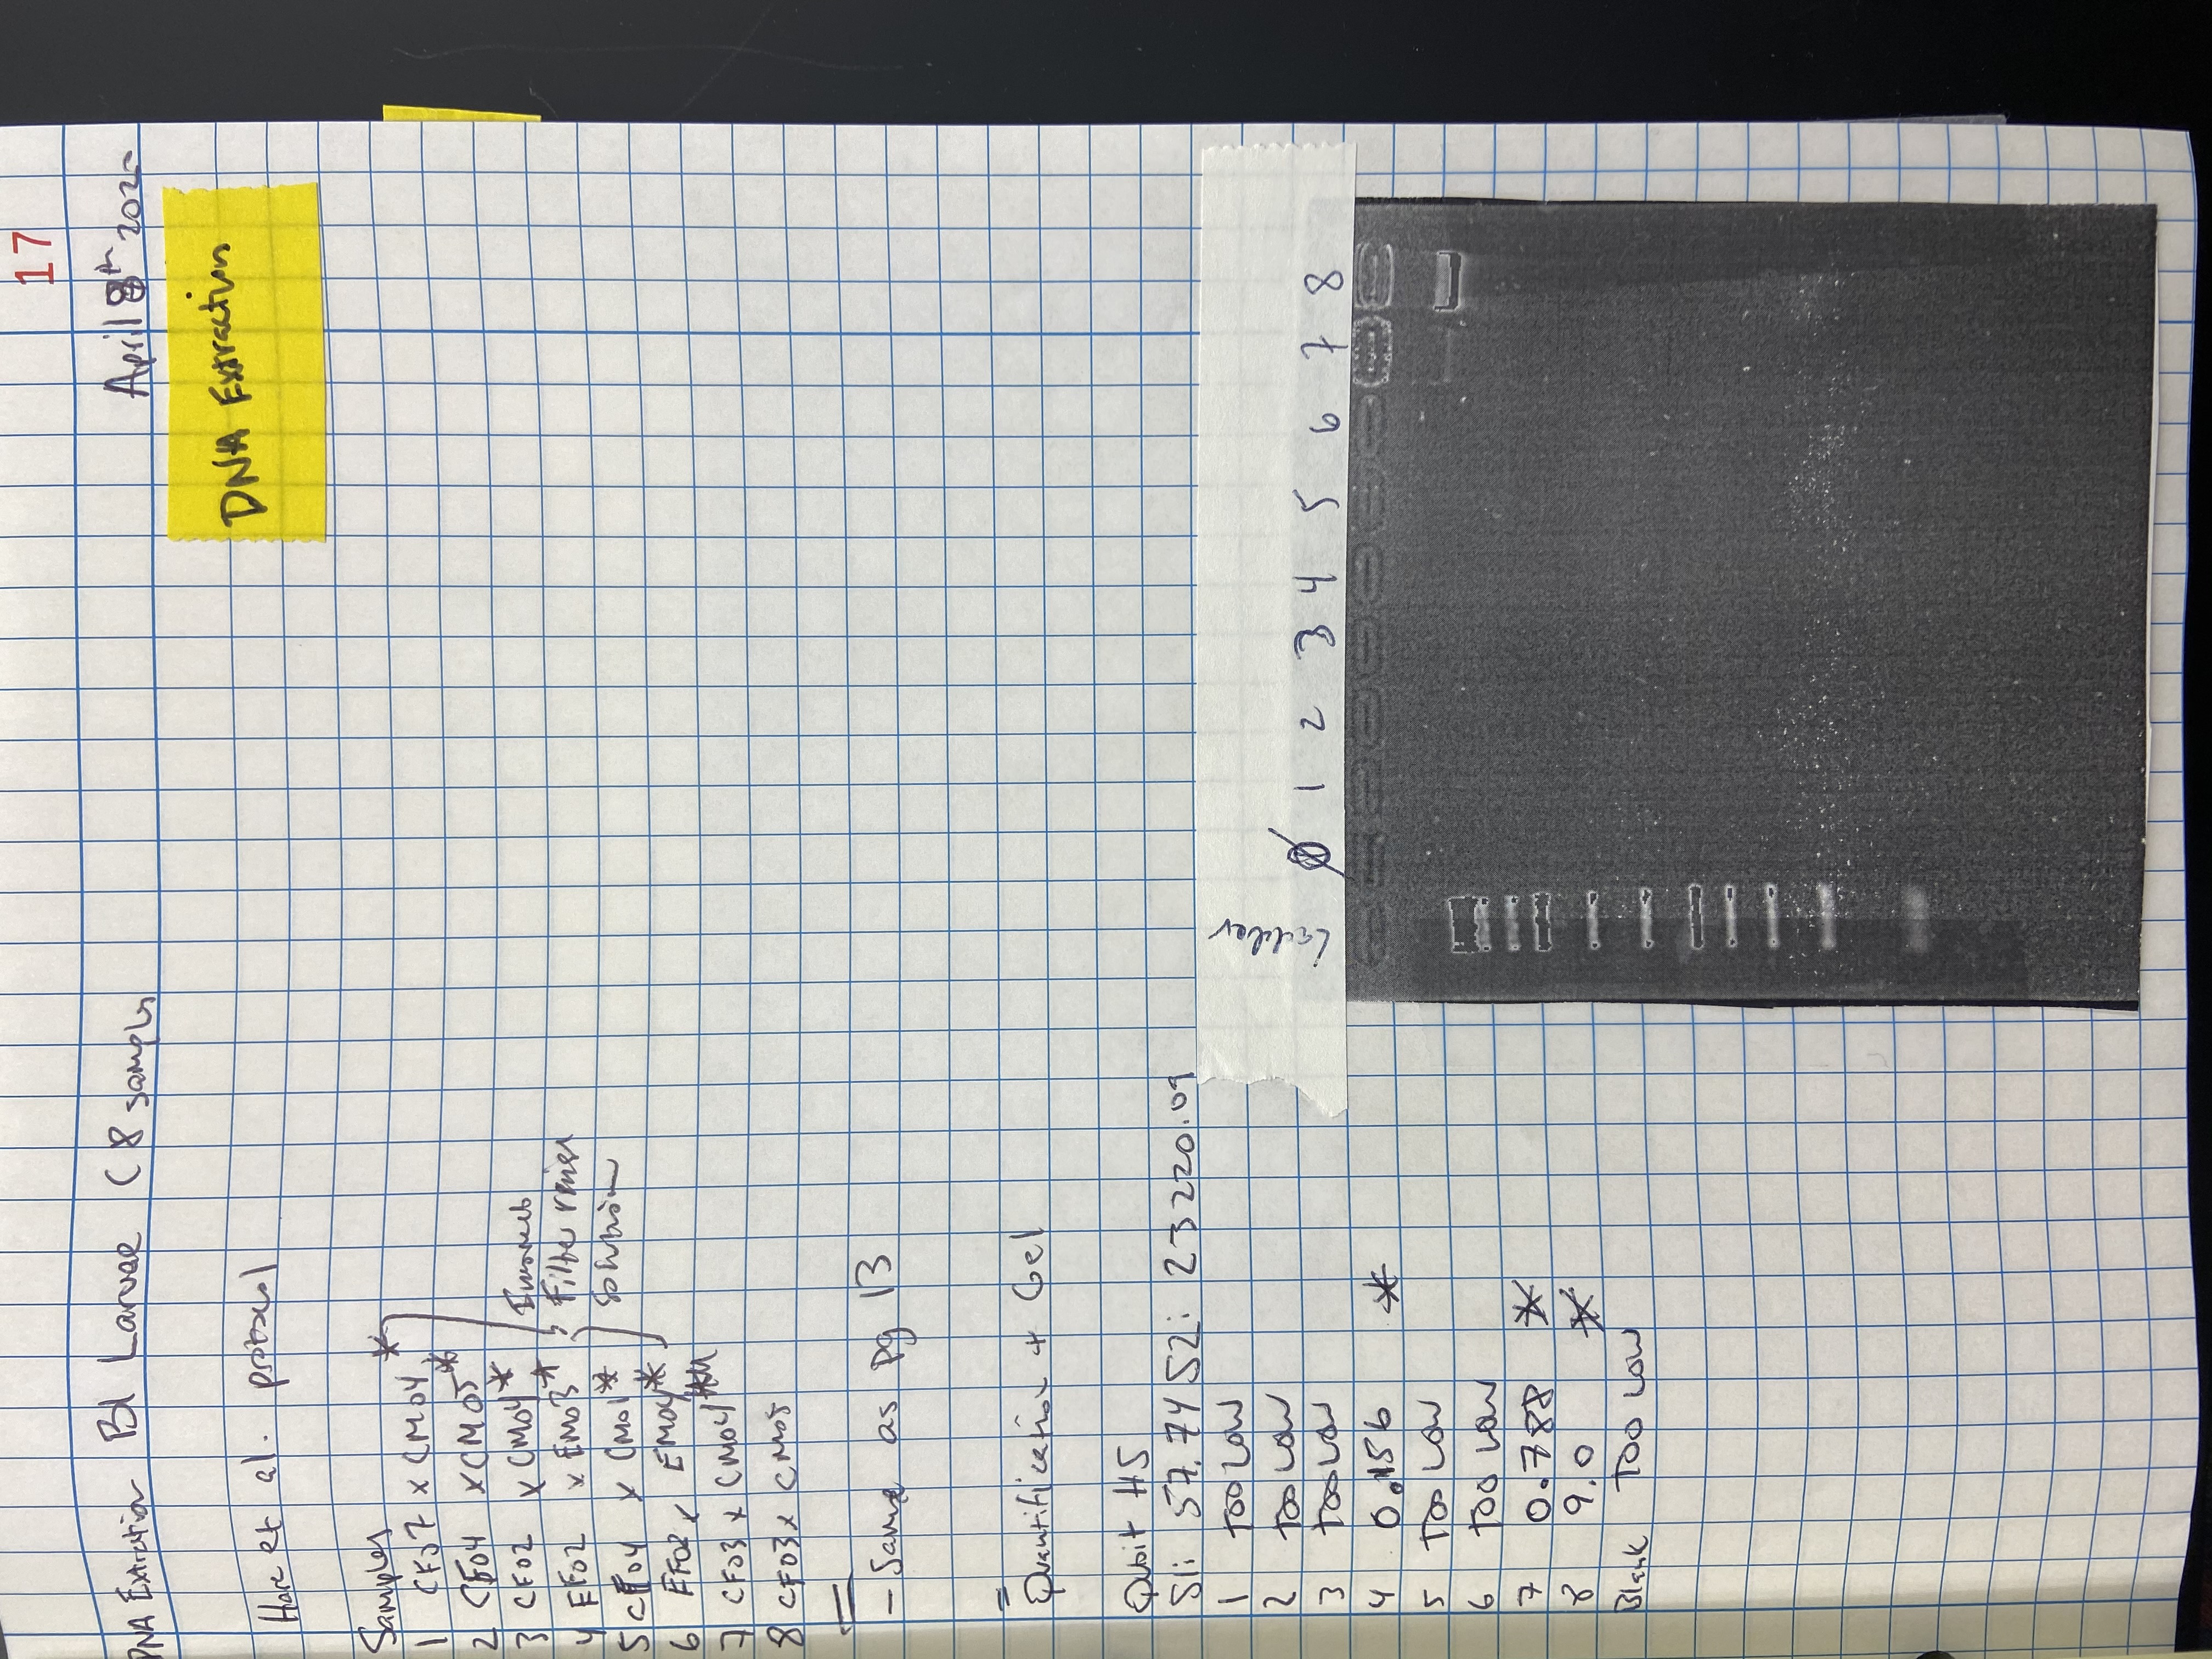 17
DNA Extraction B1 Larvae (8 samples
April 8th 202
DNA Extraction
Hare et al. protocol
Samples
1 CF07 x CM04 *
2 CF04 x CM05 *
3 CF02 x CM04 *
4 EF02 x EM03 *
5 CF04 x CM01 *
6 EF02 x EM04 *
7 CF03 x CM04
8 CF03 x CM05
Filter rinse
Solution
- Same as pg 13
Quantification + Gel
Qubit HS
S1: 57.74 S2: 23220.09
1 Too Low
2 Too Low
3 Too Low
4 0.156 *
5 Too Low
6 Too Low
7 0.788 *
8 9.0 *
Blank Too Low
Ladder 1 2 3 4 5 6 7 8